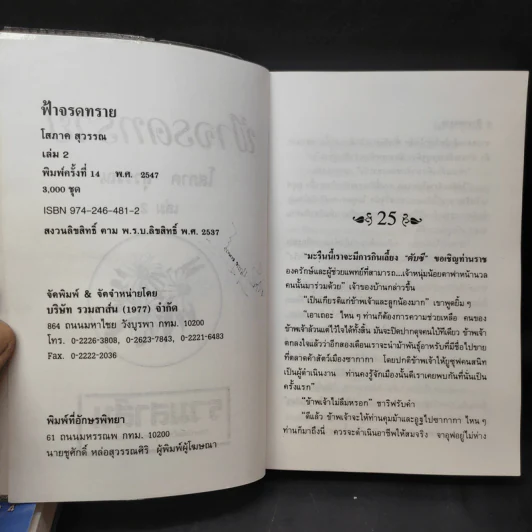 ฟ้าจรดทราย
โสภาค สุวรรณ
เล่ม 2
พิมพ์ครั้งที่ 14 พ.ศ. 2547
3,000 ชุด
ISBN 974-246-481-2
สงวนลิขสิทธิ์ ตาม พ.ร.บ.ลิขสิทธิ์ พ.ศ. 2537
จัดพิมพ์ & จัดจำหน่ายโดย
บริษัท รวมสาส์น (1977) จำกัด
864 ถนนมหาไชย วังบูรพา กทม. 10200
โทร. 0-2226-3808, 0-2623-7843, 0-2221-6483
Fax. 0-2222-2036
พิมพ์ที่อักษรพิทยา
61 ถนนมหรรณพ กทม. 10200
นายชูศักดิ์ หล่อสุวรรณศิริ ผู้พิมพ์ผู้โฆษณา
25
"มะรืนนี้เราจะมีการกินเลี้ยง "คับซี" ขอเชิญท่านราช
องครักษ์และผู้ช่วยแพทย์ที่สามารถ...เจ้าหนุ่มน้อยตาฟาหน้านวล
คนนั้นมาร่วมด้วย" เจ้าของบ้านกล่าวขึ้น
"เป็นเกียรติแก่ข้าพเจ้าและลูกน้องมาก" เขาพูดยิ้ม ๆ
"เอาเถอะ ไหน ๆ ท่านก็ต้องการความช่วยเหลือ คนของ
ข้าพเจ้าล้วนแต่ไว้ใจได้ทั้งสิ้น มันจะปิดปากดุจคนใบ้ทีเดียว ข้าพเจ้า
ตกลงใจแล้วว่าอีกสองเดือนเราจะนำม้าพันธุ์อาหรับที่มีชื่อไปขาย
ที่ตลาดค้าสัตว์เมืองซากากา โดยปกติข้าพเจ้าให้ยูซุฟคนสนิท
เป็นผู้ดำเนินงาน ท่านคงรู้จักเมืองนั้นดีเราเคยพบกันที่นั่นเป็น
ครั้งแรก"
"ข้าพเจ้าไม่ลืมหรอก" ชารีฟรับคำ
"ดีแล้ว ข้าพเจ้าจะให้ท่านคุมม้าและอูฐไปซากากา ไหน ๆ
ท่านก็มาถึงนี่ ควรจะดำเนินอาชีพให้สมจริง จาอุฟอยู่ไม่ห่าง